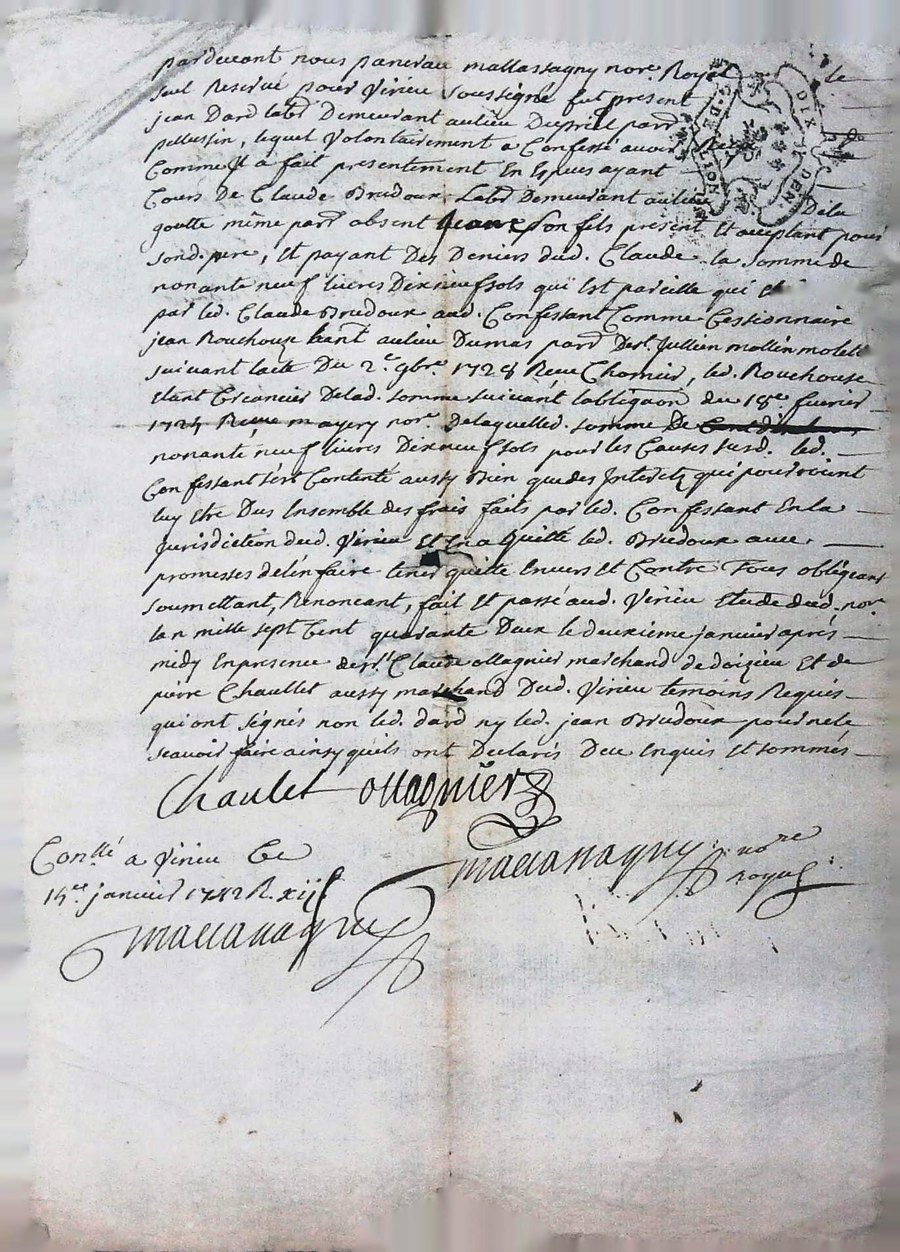 pardevant nous pancrau mallassagny nore. Royal le
seul Reservé pour Virieu soussigné fut présent
jean Dard labr. Demeurant au lieu Du parr.
pellussin, lequel Volontairement a Confessé avoir
Comme Il a fait presentement En Espèces ayant
Cours De Claude Brudoux Labr. Demeurant au lieu Dela
goutte même parr. absent jean son fils present Et acceptant pour
sond. pere, Et payant Des Deniers dud. Claude la somme de
nonante neuf livres Dixneuf sols qui Est pareille qui
par led. Claude Brudoux aud. Confessant Comme Cessionnaire
jean Rouchouse au lieu Dumas parr. De st. Jullien mollin molette
suivant lacte Du 2e. 9bre. 1728 Reçu Chomier, led. Rouchouse
Etant Creancier Delad. somme suivant lobligaon du 18e fevrier
1725 Reçue mayery nore. De laquelled. somme De
nonante neuf livres Dixneuf sols pour les Causes susd. led.
Confessant sest Contenté aussy Bien que des Interets qui pourroient
luy Etre Dus Ensemble des frais faits par led. Confessant En la
jurisdiction dud. Virieu Et En a Quitté led. Brudoux avec
promesses de len faire tenir quitte Envers Et Contre Tous obligeant
soumettant, Renonçant, fait Et passé aud. Virieu Etude dud. nore.
lan mille sept Cent quarante Deux le deuxieme janvier après
midy En presence de sr. Claude Ollagnier marchand de doizieu Et de
pierre Chaullet aussy marchand Dud. Virieu temoins Requis
qui ont signés non led. dard ny led. jean Brudoux pour ne le
scavoir faire ainsy quils ont Declarés De ce Enquis Et sommés
Chaulet ollagnier
Conllé a Virieu Ce
janvier 1742 R. xii s
nore
royal